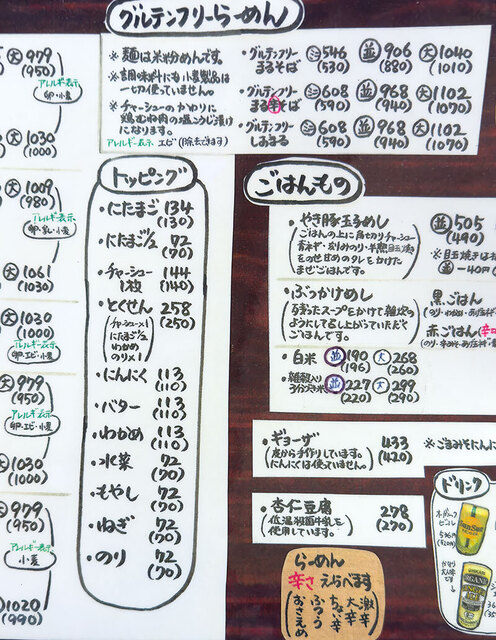 グルテンフリーらーめん
※麺は米粉めんです。
※調味料にも小麦製品は
一切使っていません。
※チャーシューのかわりに
鶏むね肉の塩こうじ漬け
になります。
アレルギー表示 エビ(除去できます)
・グルテンフリー
まるそば
小546
(530)
並906
(880)
大1040
(1010)
・グルテンフリー
まる辛そば
小608
(590)
並968
(940)
大1102
(1070)
・グルテンフリー
しおまる
小608
(590)
並968
(940)
大1102
(1070)
大979
(950)
アレルギー表示
卵・小麦
大1030
(1000)
大1009
(980)
アレルギー表示
卵・乳・小麦
大1061
(1030)
大1030
(1000)
アレルギー表示
卵・エビ・小麦
大979
(950)
アレルギー表示
卵・エビ・小麦
大1030
(1000)
大979
(950)
アレルギー表示
小麦
大1020
(990)
トッピング
・にたまご 134
(130)
・にたまご1/2 72
(70)
・チャーシュー
1枚
144
(140)
・とくせん 258
(250)
チャーシュー×1
にたまご1/2
わかめ
のり×1
・にんにく 113
(110)
・バター 113
(110)
・わかめ 113
(110)
・水菜 72
(70)
・もやし 72
(70)
・ねぎ 72
(70)
・のり 72
(70)
ごはんもの
・やき豚玉子めし
(ごはんの上に角切りチャーシュー
青ネギ・刻みのり・半熟目玉焼き
をのせ甘めのタレをかけた
まぜごはんです。)
並505
(490)
※目玉焼きは
並-40円
・ぶっかけめし
(残ったスープをかけて雑炊の
ようにして召し上がっていただく
ごはんです。)
黒ごはん
赤ごはん(辛口
・白米 並190
(196)
大268
(260)
・雑穀入り
3分づき米
並227
(220)
大299
(290)
・ギョーザ
(皮から手作りしています。
にんにくは使っていません。)
433
(420)
※ごまみそにんに
・杏仁豆腐
(低温殺菌牛乳を
使用しています。)
278
(270)
ドリンク
らーめん
辛さ えらべます
激辛
大辛
ちょい辛
ふつう
おさえめ